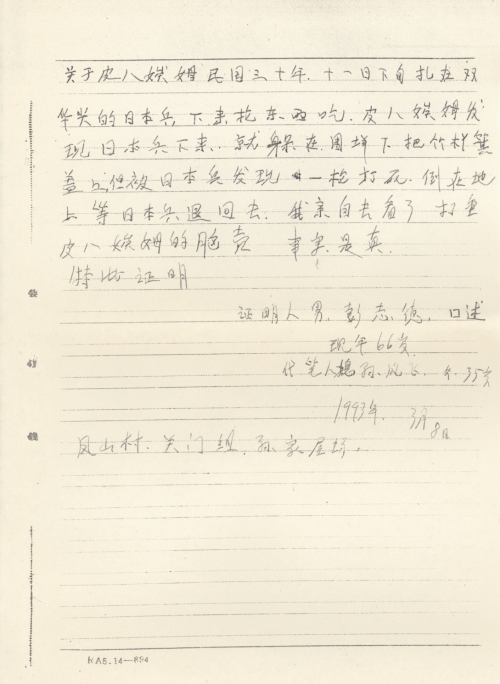 关于皮八娭姆民国三十年.十一日下旬扎在双
华尖的日本兵下来抢东西吃.皮八娭姆发
现日本兵下来.就身呆在围垟下把竹木
盖上但被日本兵发现一枪打死.倒在地
上等日本兵退回去.我亲自去看了打垂
皮八娭姆的脑壳 事实是真.
特此证明
证明人男.彭志德.口述
现年66岁
代笔人 孙 35岁
1993年.3月
8日
凤山村.关门组.孙家屋场.
KA5.14—894